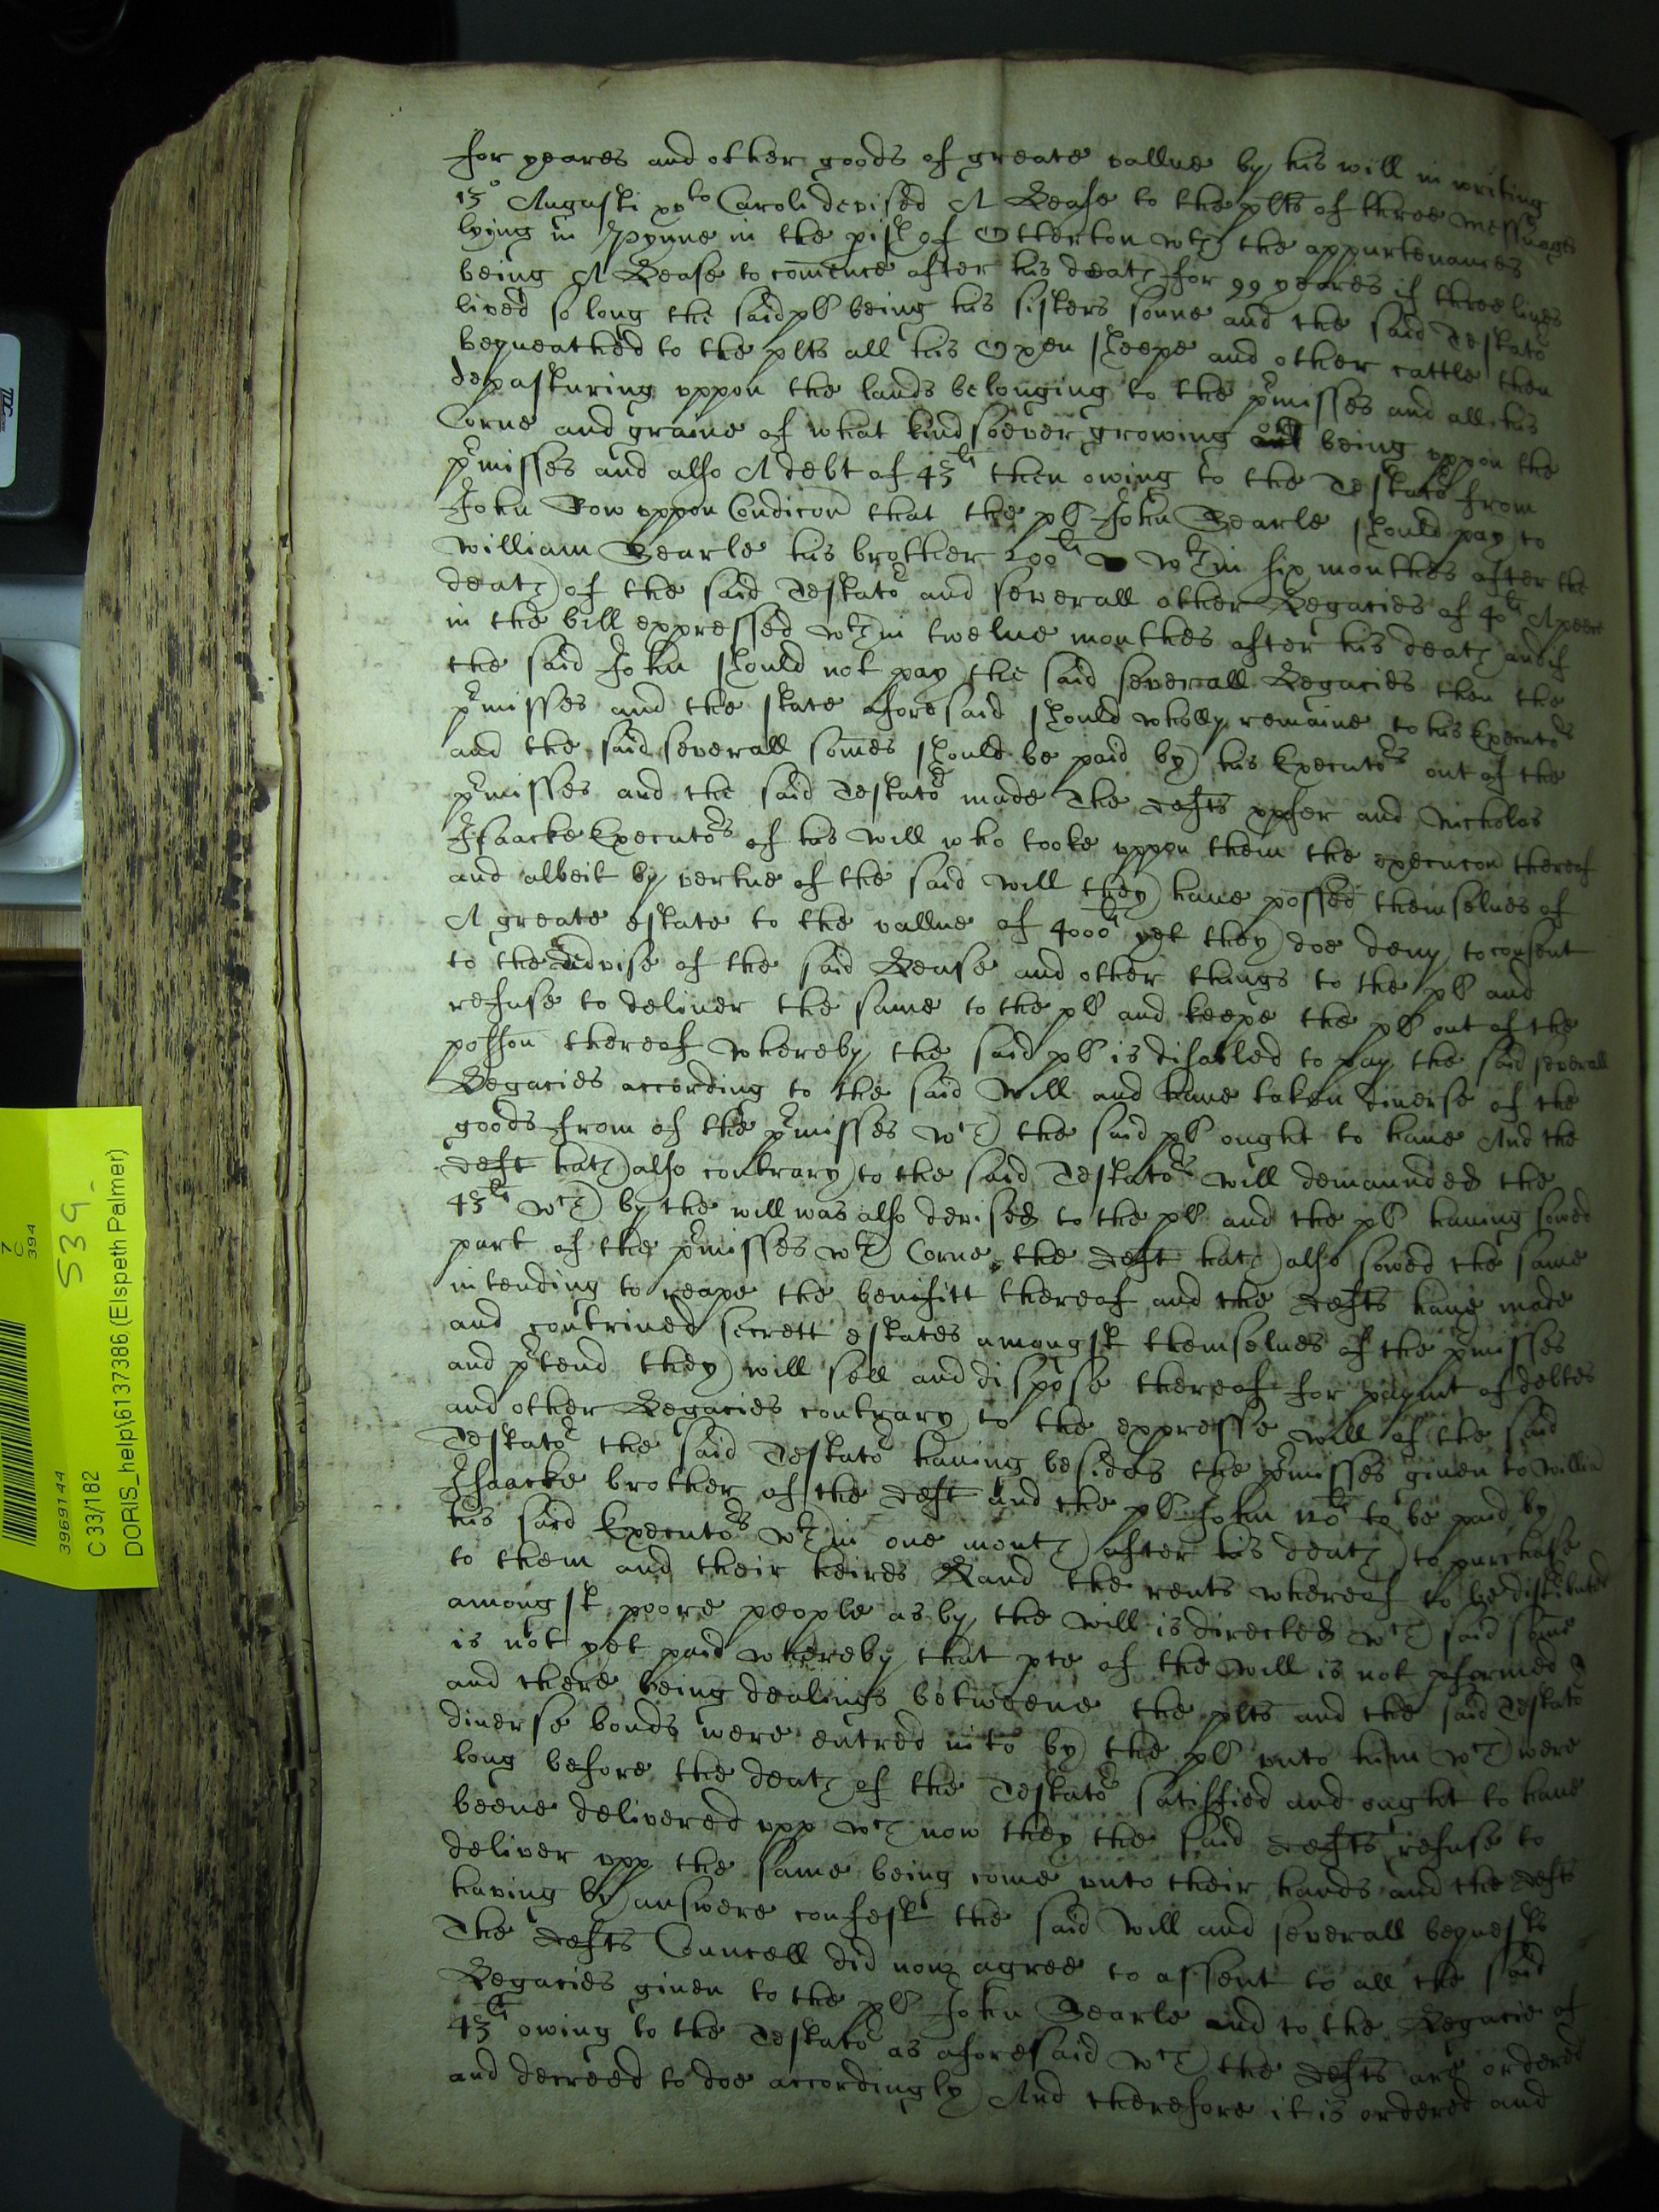 for yeares and other goods of greate vallue by his will in writing
15° Augusti xvto Caroli devised A Lease to the plts of three messuages
lying in Pynne in the pish of Otterton wth the appurtenances
being A Lease to comence after his death for 99 yeares if three lives
lived so long the said pl being his sisters sonne and the said Testator
bequeathed to the plts all his Oxen sheepe and other cattle then
depasturing uppon the lands belonging to the pmisses and all his
Corne and graine of what kind soever growing or being uppon the
pmisses and also A debt of 45li then owing to the Testator from
John uppon Condicon that the pl John Searle should pay to
William Searle his brother 200li wthin six monthes after the
death of the said Testator and severall other Legacies of 40li A peece
in the bill expressed wthin twelve monthes after his death and if
the said John should not pay the said severall Legacies then the
pmisses and the state aforesaid should wholly remaine to his Executors
and the said severall somes should be paid by his Executors out of the
pmisses and the said Testator made The defts and Nicholas
Isaacke Executors of his will who tooke uppon them the execucon thereof
and albeit by vertue of the said will they have possed themselves of
A greate estate to the vallue of 4000li yet they doe deny to consent
to the devise of the said Lease and other things to the pl and
refuse to deliver the same to the pl and keepe the pl out of the
posson thereof whereby the said pl is disabled to pay the said severall
Legacies according to the said Will and have taken diverse of the
goods from of the pmisses wch the said pl ought to have And the
deft hath also contrary to the said Testators will demaunded the
45li wch by the will was also devised to the pl and the pl having sowed
part of the pmisses wth Corne the deft hath also sowed the same
intending to reape the benifitt thereof and the defts have made
and contrived secrett estates amongst themselves of the pmisses
and ptend they will sell and dispose thereof for paymt of debtes
and other Legacies contrary to the expresse will of the said
Testator the said Testator having besides the pmisses given to Willia
Isaacke brother of the deft and the pl John 120li to be paid by
his said Executors wthin one month after his death to purchase
to them and their heires land the rents whereof to be distributed
amongst poore people as by the will is directed wch said some
is not yet paid whereby that pte of the will is not pformed
and there being dealings betweene the plts and the said Testator
diverse bonds were entred into by the pl unto him wch were
long before the death of the Testator satisfied and ought to have
beene delivered upp wch now they the said defts refuse to
deliver upp the same being come unto their hands and the defts
having by answere confest the said will and severall bequests
The defts Councell did now agree to assent to all the said
Legacies given to the pl John Searle and to the Legacie of
45li owing to the Testator as aforesaid wch the defts are ordered
and decreed to doe accordingly And therefore it is ordered and
539
7
C
394
3969144
C 33/182
DORIS_help\61737386 (Elspeth Palmer)